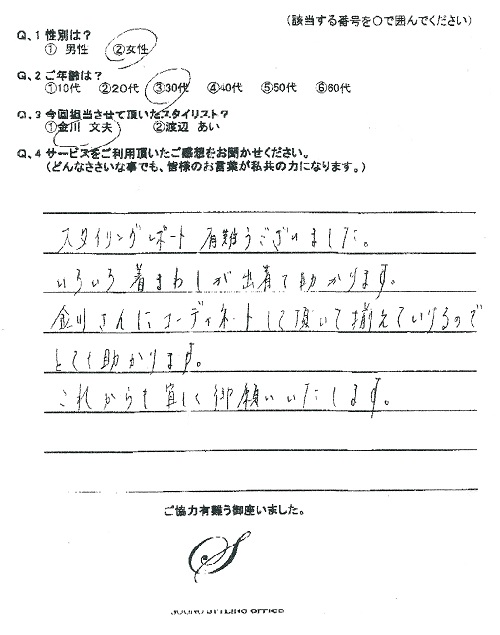 （該当する番号を○で囲んでください）
Q、1 性別は？
① 男性　②女性
Q、2 ご年齢は？
①10代　②20代　③30代　④40代　⑤50代　⑥60代
Q、3 今回担当させて頂いたスタイリスト？
①金川　文夫　②渡辺　あい
Q、4 サービスをご利用頂いたご感想をお聞かせください。
（どんなささいな事でも、皆様のお言葉が私共の力になります。）
スタイリングレポート 有難うございました。
いろいろ着まわしが出来て助かります。
金川さんにコーディネートして頂いて揃えているので
とても助かります。
これからも宜しく御願いいたします。
ご協力有難う御座いました。
S
STYLING OFFICE